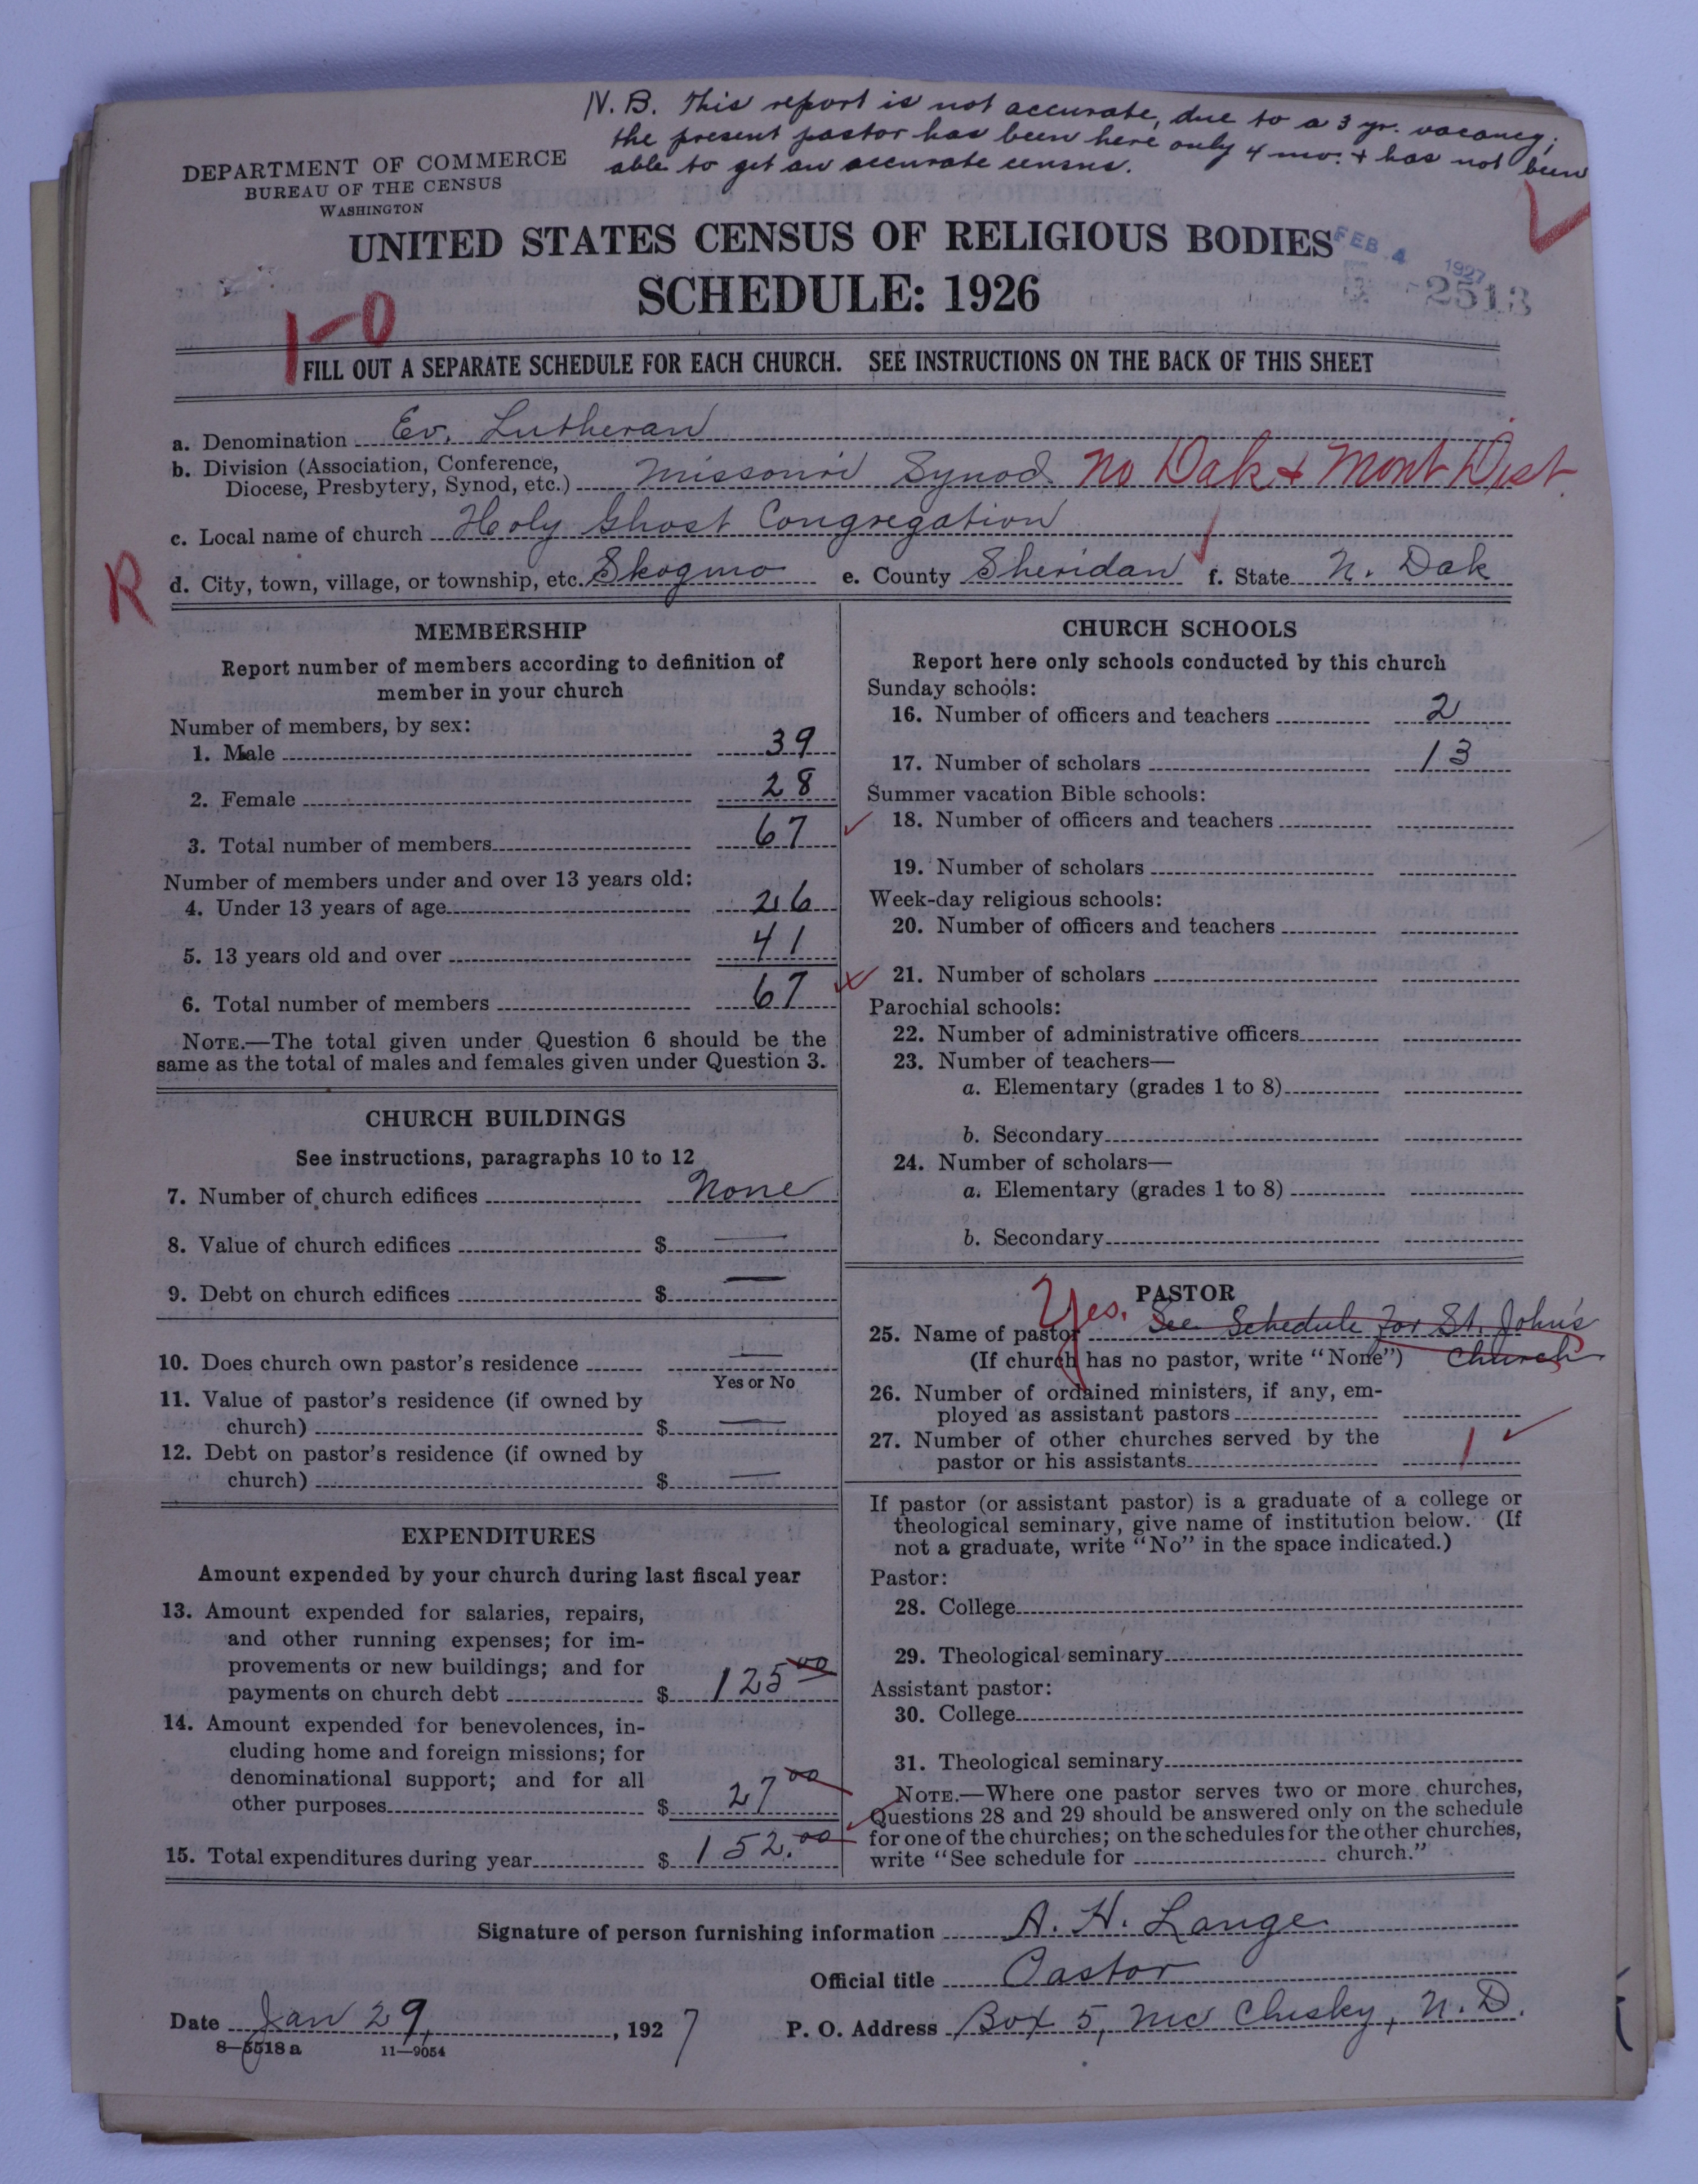 N.B. This report is not accurate, due to a 3 yr. vacancy;
the present pastor has been here only 4 mo. + has not been
able to get an accurate census.
DEPARTMENT OF COMMERCE
BUREAU OF THE CENSUS
WASHINGTON
UNITED STATES CENSUS OF RELIGIOUS BODIES
FEB. 4 1927
SCHEDULE: 1926
2513
1-0
FILL OUT A SEPARATE SCHEDULE FOR EACH CHURCH. SEE INSTRUCTIONS ON THE BACK OF THIS SHEET
a. Denomination Ev. Lutheran
b. Division (Association, Conference,
Diocese, Presbytery, Synod, etc.) Missouri Synod No Dak + Mont Dist
c. Local name of church Holy Ghost Congregation
R
d. City, town, village, or township, etc. Skogmo e. County Sheridan f. State N. Dak
MEMBERSHIP
Report number of members according to definition of
member in your church
Number of members, by sex:
1. Male 39
2. Female 28
3. Total number of members 67
Number of members under and over 13 years old:
4. Under 13 years of age 26
5. 13 years old and over 41
6. Total number of members 67
NOTE.—The total given under Question 6 should be the
same as the total of males and females given under Question 3.
CHURCH BUILDINGS
See instructions, paragraphs 10 to 12
7. Number of church edifices None
8. Value of church edifices $ —
9. Debt on church edifices $ —
10. Does church own pastor's residence —
Yes or No
11. Value of pastor's residence (if owned by
church) $ —
12. Debt on pastor's residence (if owned by
church) $ —
EXPENDITURES
Amount expended by your church during last fiscal year
13. Amount expended for salaries, repairs,
and other running expenses; for im-
provements or new buildings; and for
payments on church debt $ 125 00
14. Amount expended for benevolences, in-
cluding home and foreign missions; for
denominational support; and for all
other purposes $ 27 00
15. Total expenditures during year $ 152.00
CHURCH SCHOOLS
Report here only schools conducted by this church
Sunday schools:
16. Number of officers and teachers 2
17. Number of scholars 13
Summer vacation Bible schools:
18. Number of officers and teachers
19. Number of scholars
Week-day religious schools:
20. Number of officers and teachers
21. Number of scholars
Parochial schools:
22. Number of administrative officers
23. Number of teachers—
a. Elementary (grades 1 to 8)
b. Secondary
24. Number of scholars—
a. Elementary (grades 1 to 8)
b. Secondary
PASTOR
Yes.
25. Name of pastor See Schedule For St. John's
(If church has no pastor, write "None") Church
26. Number of ordained ministers, if any, em-
ployed as assistant pastors
27. Number of other churches served by the
pastor or his assistants 1
If pastor (or assistant pastor) is a graduate of a college or
theological seminary, give name of institution below. (If
not a graduate, write "No" in the space indicated.)
Pastor:
28. College
29. Theological seminary
Assistant pastor:
30. College
31. Theological seminary
NOTE.—Where one pastor serves two or more churches,
Questions 28 and 29 should be answered only on the schedule
for one of the churches; on the schedules for the other churches,
write "See schedule for church."
Signature of person furnishing information A. H. Lange
Official title Pastor
Date Jan 29, 1927 P. O. Address Box 5, Mc Clusky, N. D.
8—5518 a 11—9054